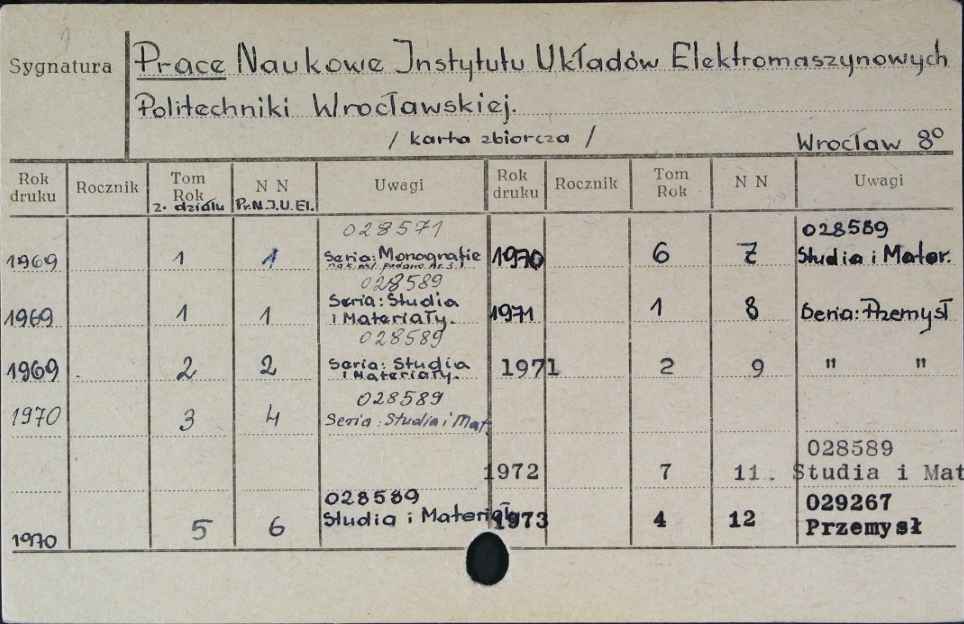 Sygnatura
Prace Naukowe Instytutu Układów Elektromaszynowych
Politechniki Wrocławskiej.
/ karta zbiorcza /
Wrocław 8⁰
Rok druku Rocznik Tom Rok z. działu N N Pr.N.I.U.El. Uwagi Rok druku Rocznik Tom Rok N N Uwagi
028571
1969 1 1 Seria: Monografie 1970 6 7 028589 Studia i Mater.
028589
1969 1 1 Seria: Studia i Materiały. 1971 1 8 Seria: Przemysł
028589
1969 2 2 Seria: Studia i Materiały. 1971 2 9 " "
028589
1970 3 4 Seria: Studia i Mat.
1972 7 11. 028589 Studia i Mat
1970 5 6 028589 Studia i Materiały 1973 4 12 029267 Przemysł